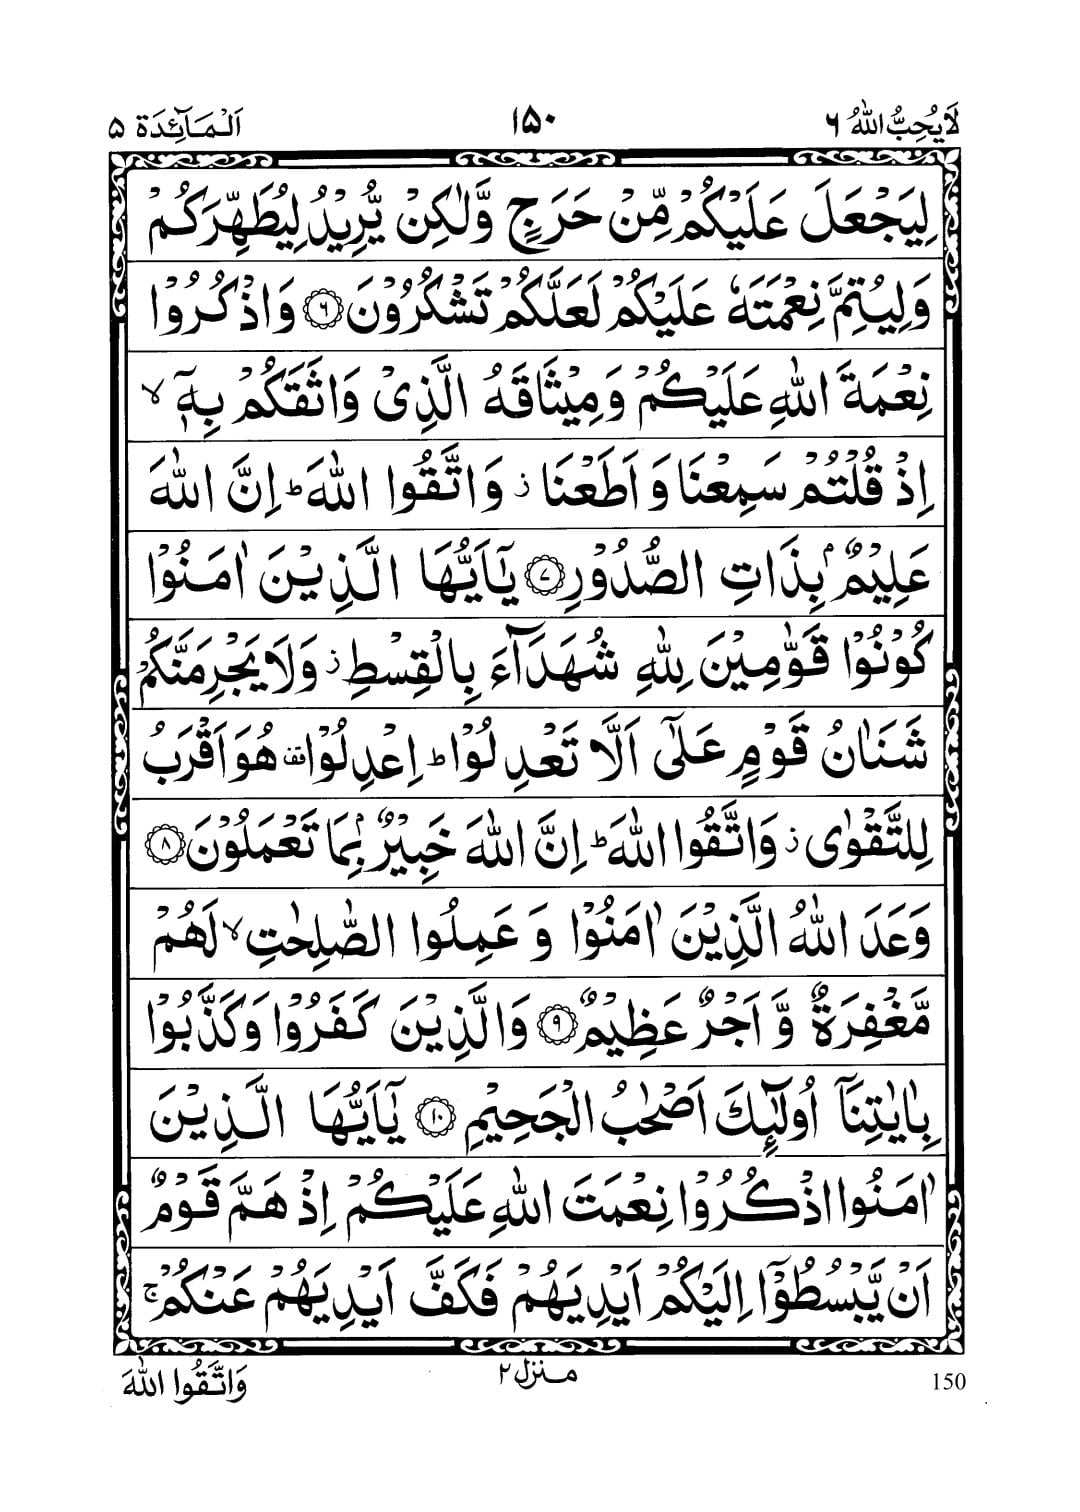 لَا يُحِبُّ اللّٰهُ ٦ ١٥٠ اَلْمَآئِدَة ٥
لِيَجْعَلَ عَلَيْكُمْ مِّنْ حَرَجٍ وَّلٰكِنْ يُّرِيْدُ لِيُطَهِّرَكُمْ
وَلِيُتِمَّ نِعْمَتَهٗ عَلَيْكُمْ لَعَلَّكُمْ تَشْكُرُوْنَ ۝٦ وَاذْكُرُوْا
نِعْمَةَ اللّٰهِ عَلَيْكُمْ وَمِيْثَاقَهُ الَّذِيْ وَاثَقَكُمْ بِهٖٓ ۙ
اِذْ قُلْتُمْ سَمِعْنَا وَاَطَعْنَا ز وَاتَّقُوا اللّٰهَ ؕ اِنَّ اللّٰهَ
عَلِيْمٌۢ بِذَاتِ الصُّدُوْرِ ۝٧ يٰۤاَيُّهَا الَّذِيْنَ اٰمَنُوْا
كُوْنُوْا قَوّٰمِيْنَ لِلّٰهِ شُهَدَآءَ بِالْقِسْطِ ز وَلَا يَجْرِمَنَّكُمْ
شَنَاٰنُ قَوْمٍ عَلٰٓى اَلَّا تَعْدِلُوْا ؕ اِعْدِلُوْا قف هُوَ اَقْرَبُ
لِلتَّقْوٰى ز وَاتَّقُوا اللّٰهَ ؕ اِنَّ اللّٰهَ خَبِيْرٌۢ بِمَا تَعْمَلُوْنَ ۝٨
وَعَدَ اللّٰهُ الَّذِيْنَ اٰمَنُوْا وَعَمِلُوا الصّٰلِحٰتِ ۙ لَهُمْ
مَّغْفِرَةٌ وَّاَجْرٌ عَظِيْمٌ ۝٩ وَالَّذِيْنَ كَفَرُوْا وَكَذَّبُوْا
بِاٰيٰتِنَاۤ اُولٰٓئِكَ اَصْحٰبُ الْجَحِيْمِ ۝١٠ يٰۤاَيُّهَا الَّذِيْنَ
اٰمَنُوا اذْكُرُوْا نِعْمَتَ اللّٰهِ عَلَيْكُمْ اِذْ هَمَّ قَوْمٌ
اَنْ يَّبْسُطُوْۤا اِلَيْكُمْ اَيْدِيَهُمْ فَكَفَّ اَيْدِيَهُمْ عَنْكُمْ ۚ
وَاتَّقُوا اللّٰهَ
منزل ٢
150